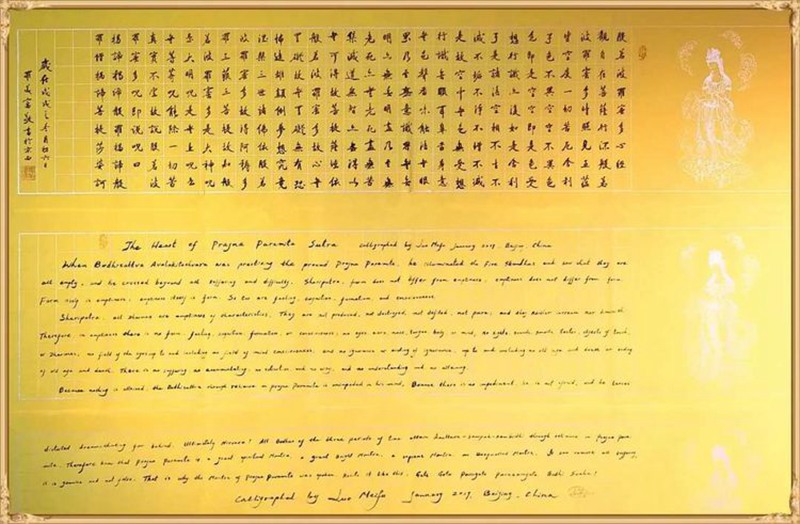 般若波羅蜜多心經
觀自在菩薩行深般若
波羅蜜多時照見五蘊
皆空度一切苦厄舍利
子色不異空空不異色
色即是空空即是色受
想行識亦復如是舍利
子是諸法空相不生不
滅不垢不淨不增不減
是故空中无色无受想
行識无眼耳鼻舌身意
无色聲香味觸法无眼
界乃至无意識界无无
明亦无无明盡乃至无
老死亦无老死盡无苦
集滅道无智亦无得以
无所得故菩提薩埵依
般若波羅蜜多故心无
罣礙无罣礙故无有恐
怖遠離顛倒夢想究竟
涅槃三世諸佛依般若
波羅蜜多故得阿耨多
羅三藐三菩提故知般
若波羅蜜多是大神咒
是大明咒是无上咒是
无等等咒能除一切苦
真實不虛故說般若波
羅蜜多咒即說咒曰
揭諦揭諦般羅揭諦般
羅僧揭諦菩提莎婆訶
歲在戊戌之冬月初六日
羅美富敬書於京西
The Heart of Prajna Paramita Sutra Calligraphed by Luo Meifu January 2019, Beijing, China
When Bodhisattva Avalokiteshvara was practicing the profound Prajna Paramita, he illuminated the Five Skandhas and saw that they are
all empty, and he crossed beyond all suffering and difficulty. Shariputra, form does not differ from emptiness, emptiness does not differ from form.
Form itself is emptiness; emptiness itself is form. So too are feeling, cognition, formation, and consciousness.
Shariputra, all dharmas are emptiness of characteristics. They are not produced, not destroyed, not defiled, not pure; and they neither increase nor diminish.
Therefore, in emptiness there is no form, feeling, cognition, formation, or consciousness; no eyes, ears, nose, tongue, body, or mind; no sights, sounds, smells, tastes, objects of touch,
or dharmas; no field of the eyes up to and including no field of mind consciousness; and no ignorance or ending of ignorance, up to and including no old age and death or ending
of old age and death. There is no suffering, no accumulating, no extinction, and no way, and no understanding and no attaining.
Because nothing is attained, the Bodhisattva through reliance on prajna Paramita is unimpeded in his mind. Because there is no impediment, he is not afraid, and he leaves
distorted dream-thinking far behind. Ultimately Nirvana! All Buddhas of the three periods of time attain Anuttara-samyak-sambodhi through reliance on Prajna Para-
mita. Therefore know that Prajna Paramita is a great spiritual Mantra, a great bright Mantra, a supreme Mantra, an unequalled Mantra. It can remove all suffering;
it is genuine and not false. That is why the Mantra of Prajna Paramita was spoken. Recite it like this: Gate Gate Paragate Parasamgate Bodhi Svaha!
Calligraphed by Luo Meifu January 2019, Beijing, China